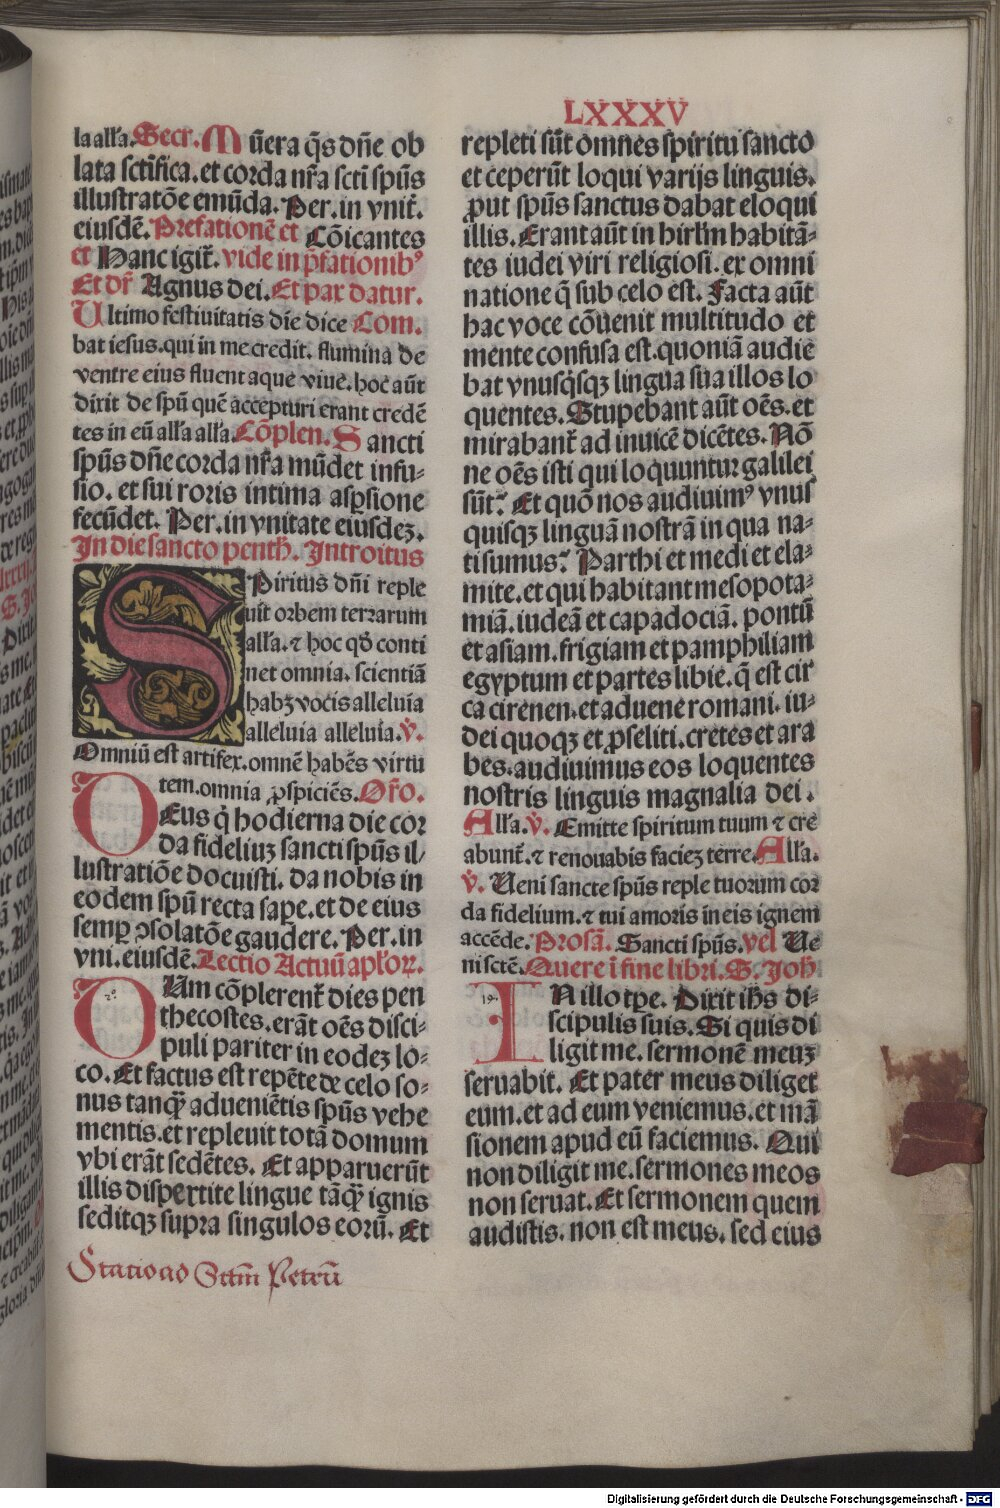 LXXXV
la all'a. Secr. Mūera q̄s dn̄e ob
lata sct̄ifica. et corda nr̄a sct̄i sp̄ūs
illustratōe emūda. Per. in vnit̄.
eiusdē. Prefationē et Cōicantes
et Hanc igit̄. vide in p̄fationibꝰ
Et dr̄ Agnus dei. Et pax datur.
Ultimo festiuitatis die dice Com.
bat iesus. qui in me credit. flumina de
ventre eius fluent aque viue. hoc aūt
dixit de spū quē accepturi erant credē
tes in eū all'a all'a. Cōplen. Sancti
sp̄ūs dn̄e corda nr̄a mūdet infu⸗
sio. et sui roris intima asꝑsione
fecūdet. Per. in vnitate eiusdeꝫ.
In die sancto penth. Introitus
SPiritus dn̄i reple
uit orbem terrarum
all'a. ⁊ hoc qd̄ conti
net omnia. scientiā
habꝫ vocis alleluia
alleluia alleluia. v̄.
Omniū est artifex. omnē habēs virtu
tem. omnia ꝓspiciēs. Or̄o.
DEus q̇ hodierna die cor
da fideliuꝫ sancti sp̄ūs il/
lustratiōe docuisti. da nobis in
eodem spū recta sape. et de eius
semꝑ ↄsolatōe gaudere. Per. in
vni. eiusdē. Lectio Actuū apl'oꝝ.
DUm cōplerent̄ dies pen
thecostes. erāt oēs disci⸗
puli pariter in eodeꝫ lo⸗
co. Et factus est repēte de celo so⸗
nus tanq̄ꝫ adueniētis sp̄ūs vehe
mentis. et repleuit totā domum
vbi erāt sedētes. Et apparuerūt
illis dispertite lingue tāq̄ꝫ ignis
seditqꝫ supra singulos eorū. Et
Statio ad Sctm̄ Petrū
repleti sūt omnes spiritu sancto
et ceperūt loqui varijs linguis.
ꝓut sp̄ūs sanctus dabat eloqui
illis. Erant aūt in hirl'm habitā⸗
tes iudei viri religiosi. ex omni
natione q̄ sub celo est. Facta aūt
hac voce cōuenit multitudo et
mente confusa est. quoniā audie
bat vnusq̇sqꝫ lingua sua illos lo
quentes. Stupebant aūt oēs. et
mirabant̄ ad inuicē dicētes. Nō
ne oēs isti qui loquuntur galilei
sūt? Et quō nos audiuimꝰ vnus
quisqꝫ linguā nostrā in qua na⸗
ti sumus? Parthi et medi et ela⸗
mite. et qui habitant mesopota⸗
miā. iudeā et capadociā. pontū
et asiam. frigiam et pamphiliam
egyptum et partes libie. q̄ est cir
ca cirenen. et aduene romani. iu⸗
dei quoqꝫ et ꝓseliti. cretes et ara
bes. audiuimus eos loquentes
nostris linguis magnalia dei.
All'a. v̄. Emitte spiritum tuum ⁊ cre
abunt̄. ⁊ renouabis facieꝫ terre. All'a.
v̄. Ueni sancte sp̄ūs reple tuorum cor
da fidelium. ⁊ tui amoris in eis ignem
accēde. Prosā. Sancti sp̄ūs. vel Ue
ni sctē. Quere ī fine libri. S. Joh
IN illo tp̄e. Dixit ih̄s di⸗
scipulis suis. Si quis di
ligit me. sermonē meuꝫ
seruabit. Et pater meus diliget
eum. et ad eum veniemus. et mā
sionem apud eū faciemus. Qui
non diligit me. sermones meos
non seruat. Et sermonem quem
audistis. non est meus. sed eius
Digitalisierung gefördert durch die Deutsche Forschungsgemeinschaft - DFG